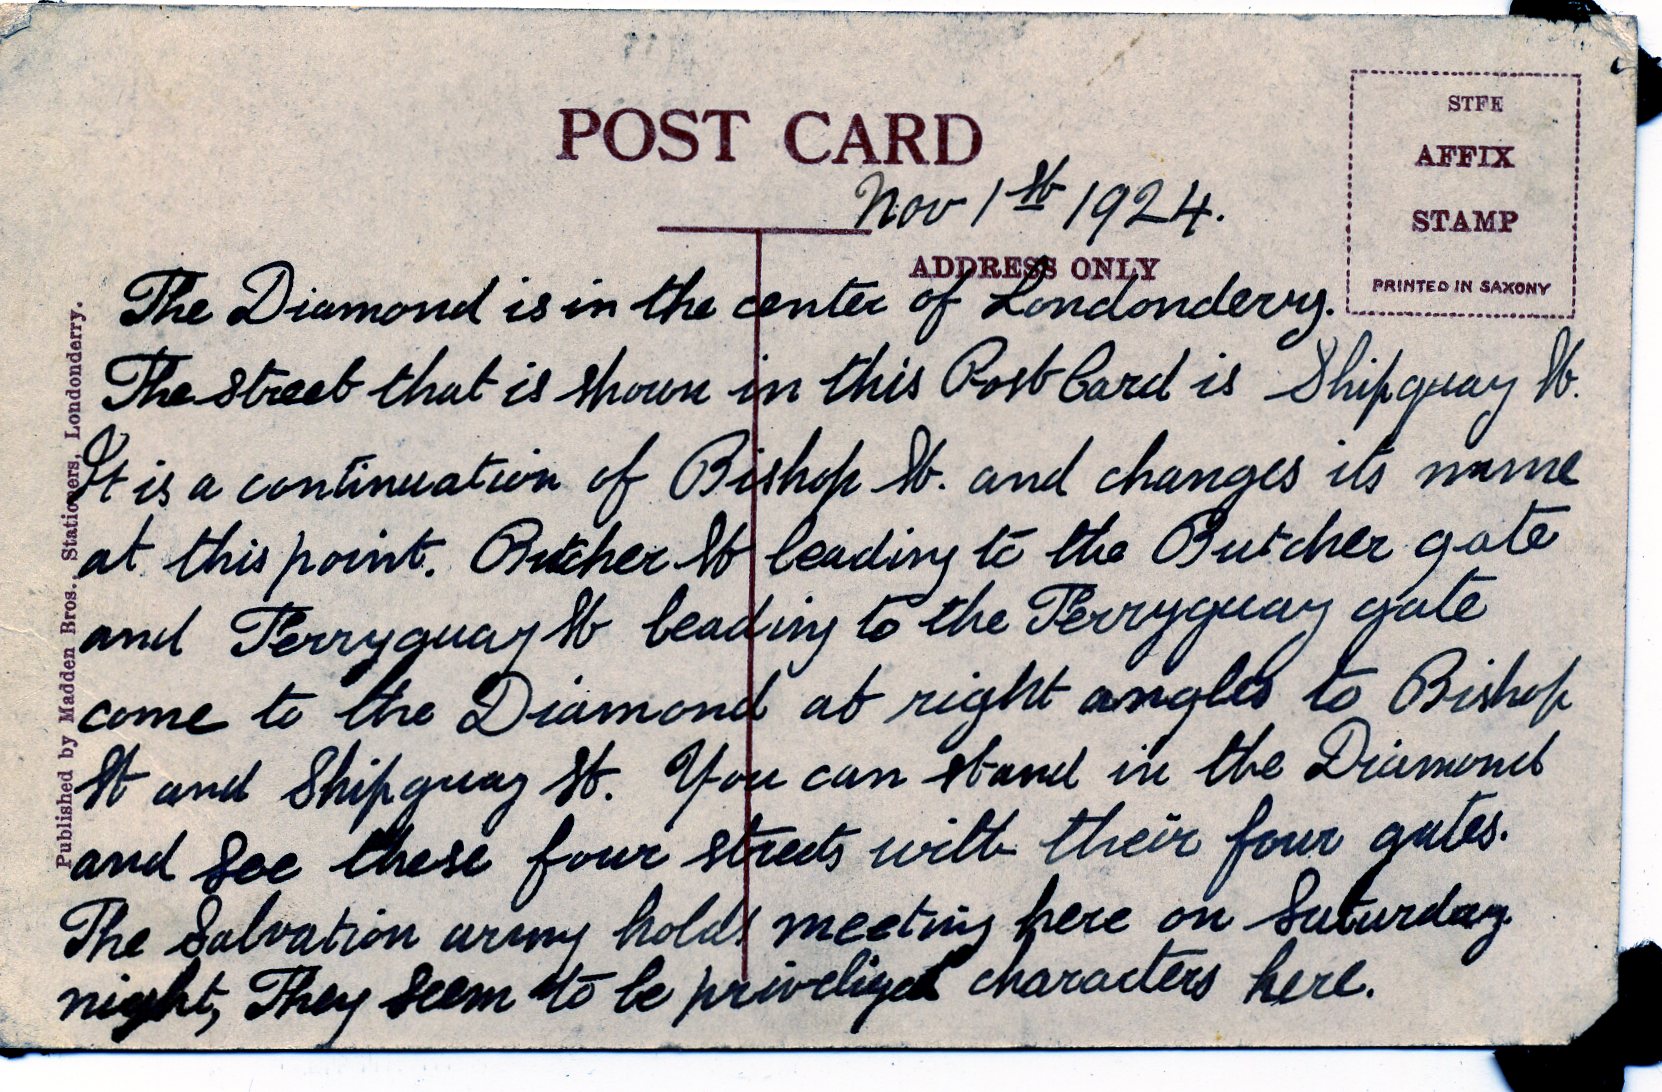 POST CARD
STFE
AFFIX
STAMP
PRINTED IN SAXONY
Nov 1st 1924.
ADDRESS ONLY
The Diamond is in the center of Londonderry.
The street that is shown in this Post Card is Shipquay St.
It is a continuation of Bishop St. and changes its name
at this point. Butcher St leading to the Butcher gate
and Ferryquay St leading to the Ferryquay gate
come to the Diamond at right angles to Bishop
St and Shipquay St. You can stand in the Diamond
and see these four streets with their four gates.
The Salvation army holds meeting here on Saturday
night, They seem to be priveliged characters here.
Published by Madden Bros., Stationers, Londonderry.